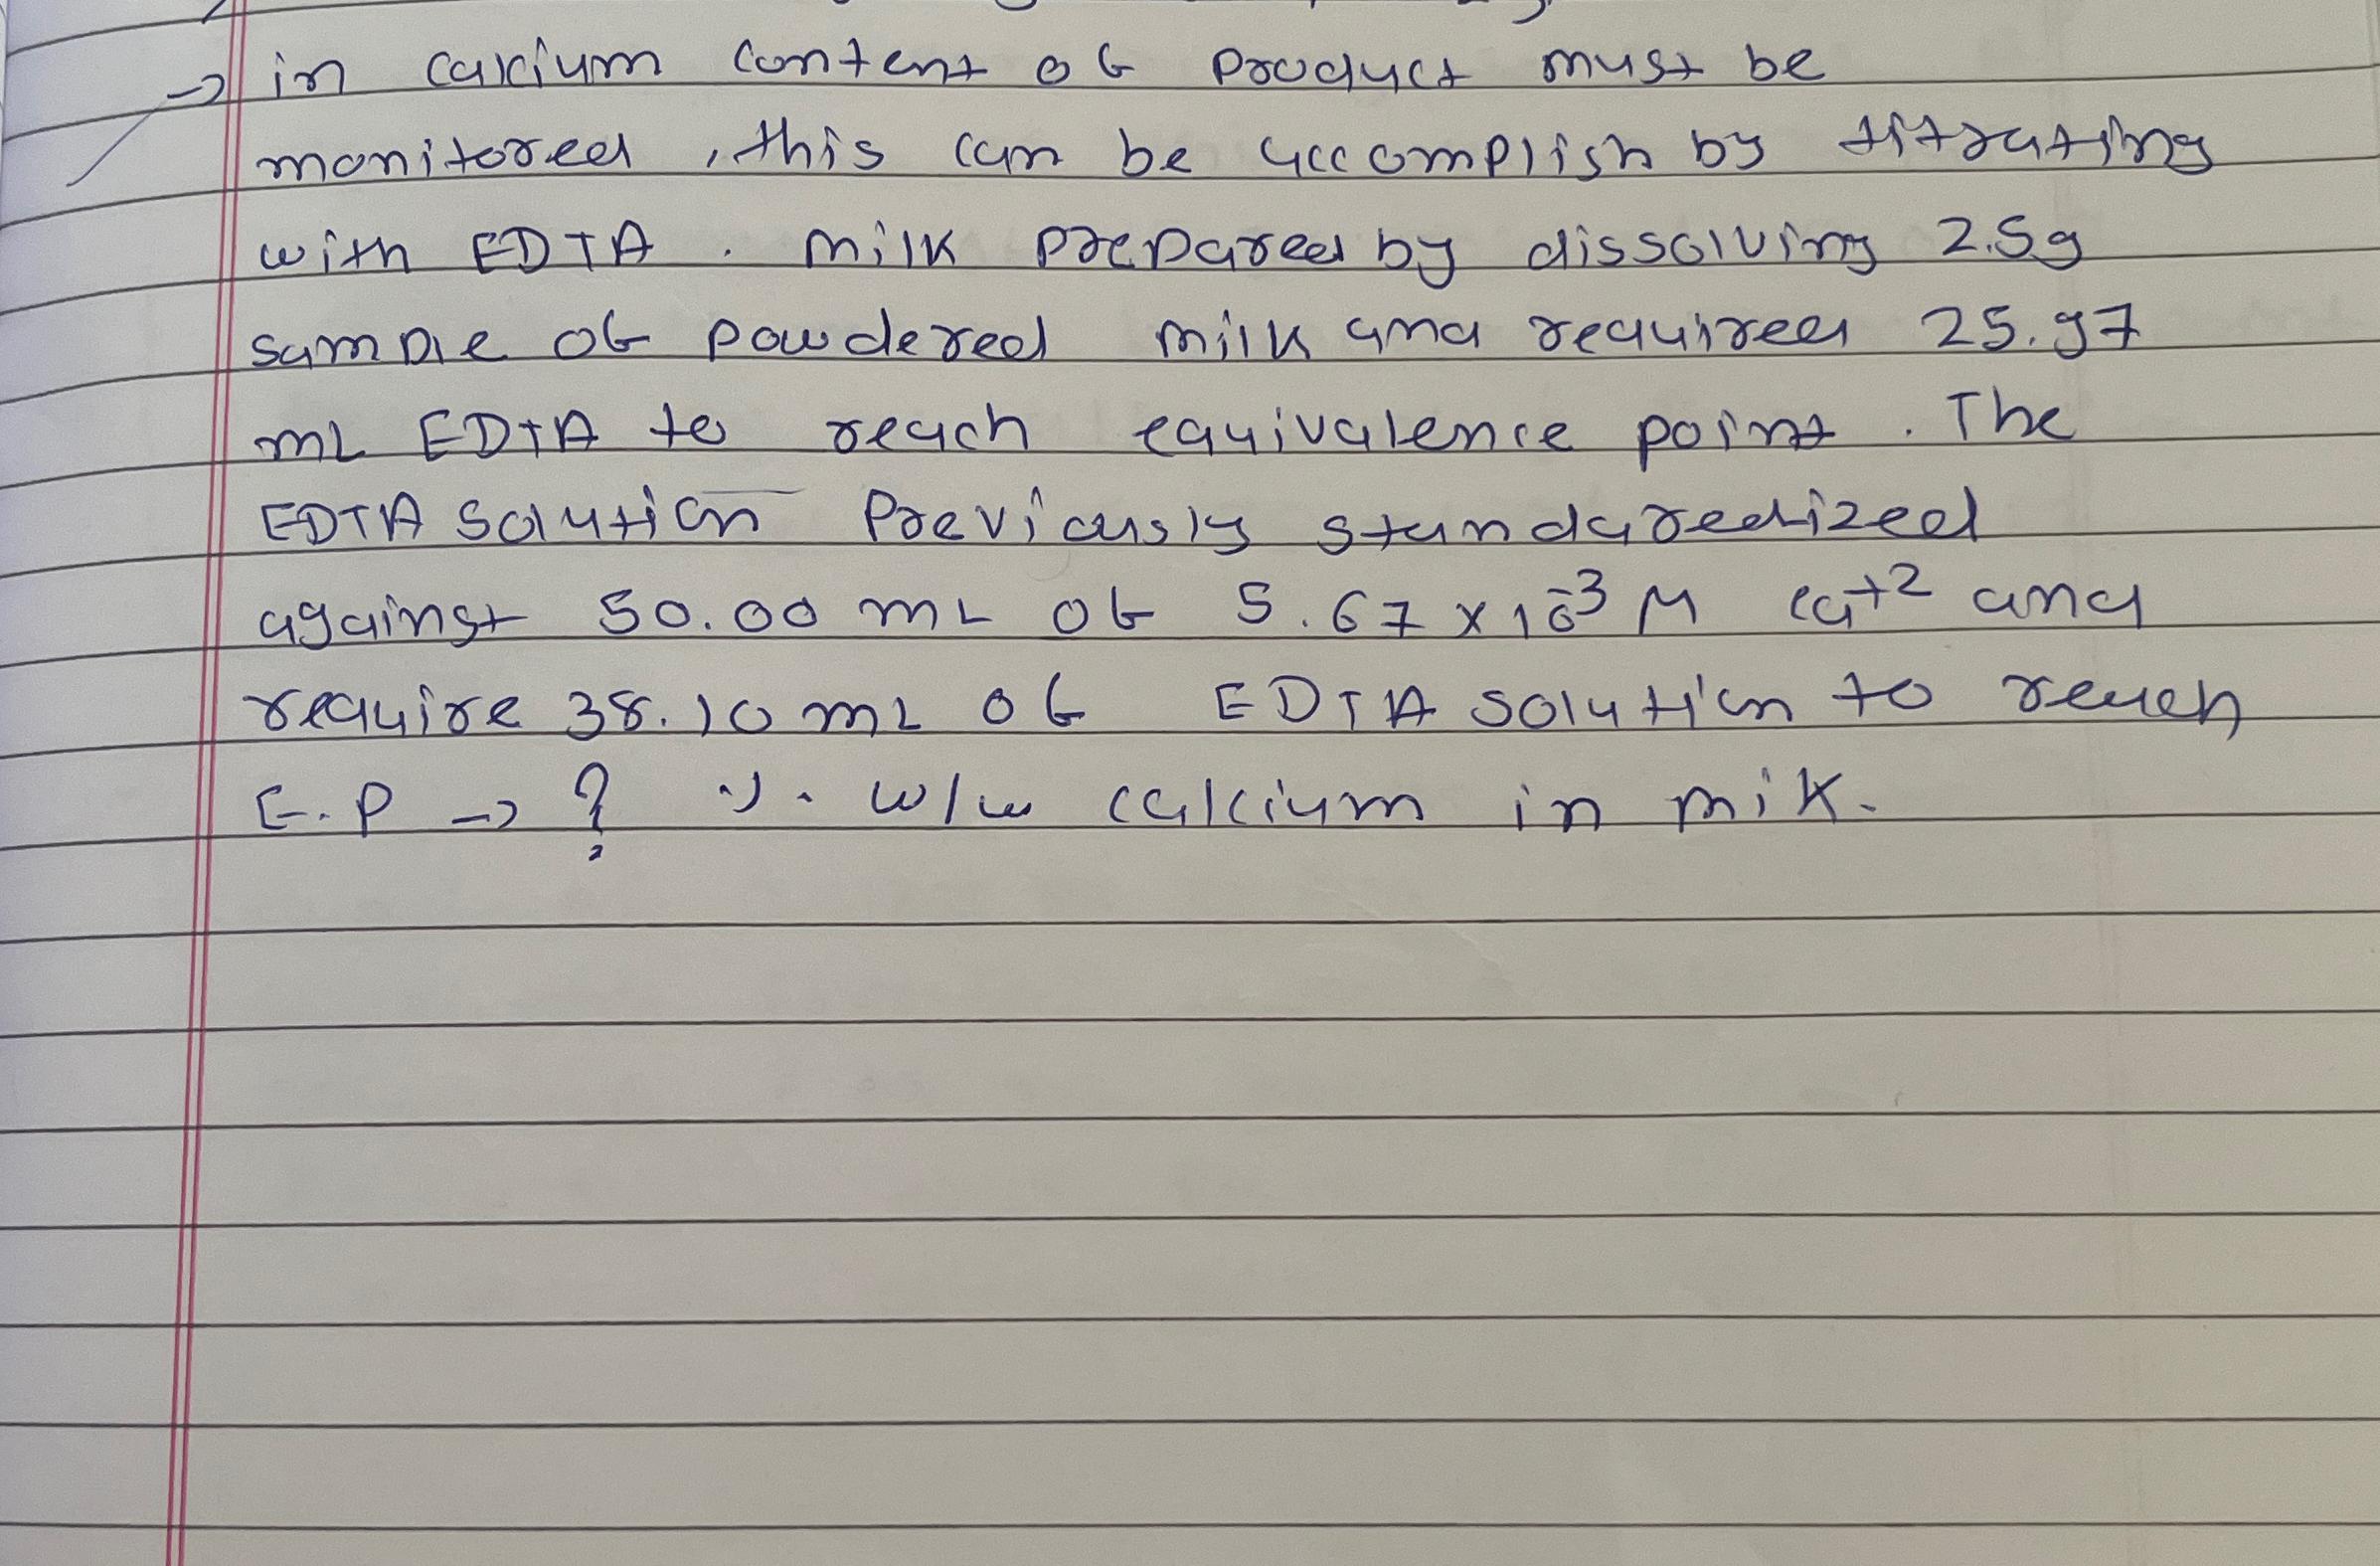 → in calcium content of product must be
monitored , this can be accomplish by titrating
with EDTA . Milk prepared by dissolving 2.5g
sample of powdered milk and required 25.97
mL EDTA to reach equivalence point . The
EDTA solution Previously standaredized
against 50.00 mL of 5.67 x 10⁻³ M Ca+² and
require 38.10 mL of EDTA solution to reach
E.P → ? % w/w calcium in mik.